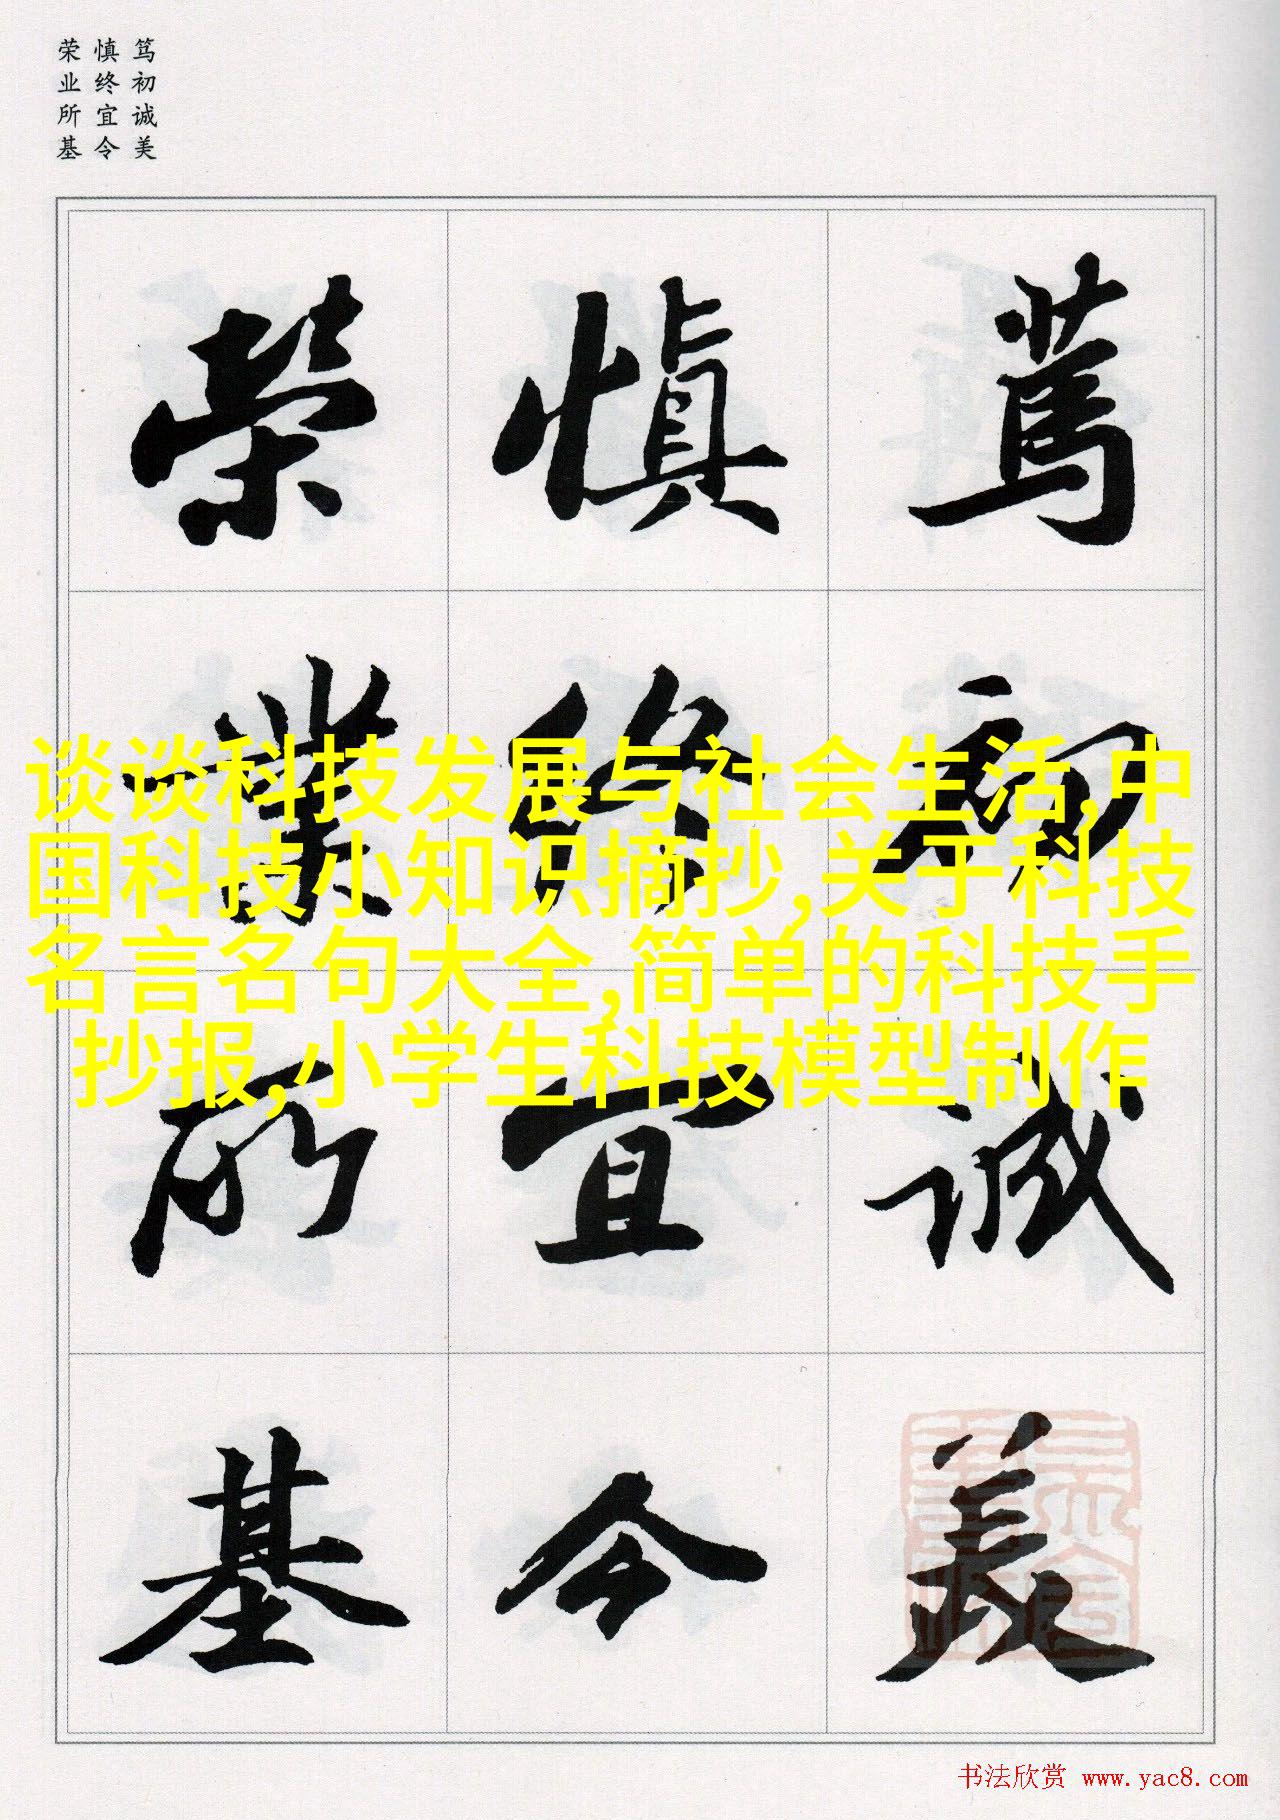 笃初诚美
慎终宜令
荣业所基
篤初誠美
慎終宜令
榮業所基
谈谈科技发展与社会生活,中
国科技小知识摘抄,关于科技
名言名句大全,简单的科技手
抄报,小学生科技模型制作
书法欣赏 www.yac8.com